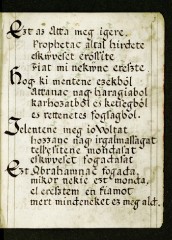 Ezt az Atta meg igere,
Prophetac altal hirdete
eskwvest erössite
Fiat mi nekwnc ereszte
Hog ki mentene ezekből
Attanac nag haragiabol
karhozatból es ketsegből
es rettenetes fogsagbol.
Jelentene meg io voltat
hozzanc nag irgalmassagat
tellyesitene mondasat
eskwvest fogadasat
Ezt Abrahamnac fogada,
mikor nekie ezt monda,
el eresztem en fiamot
mert mindeneket es meg ald.